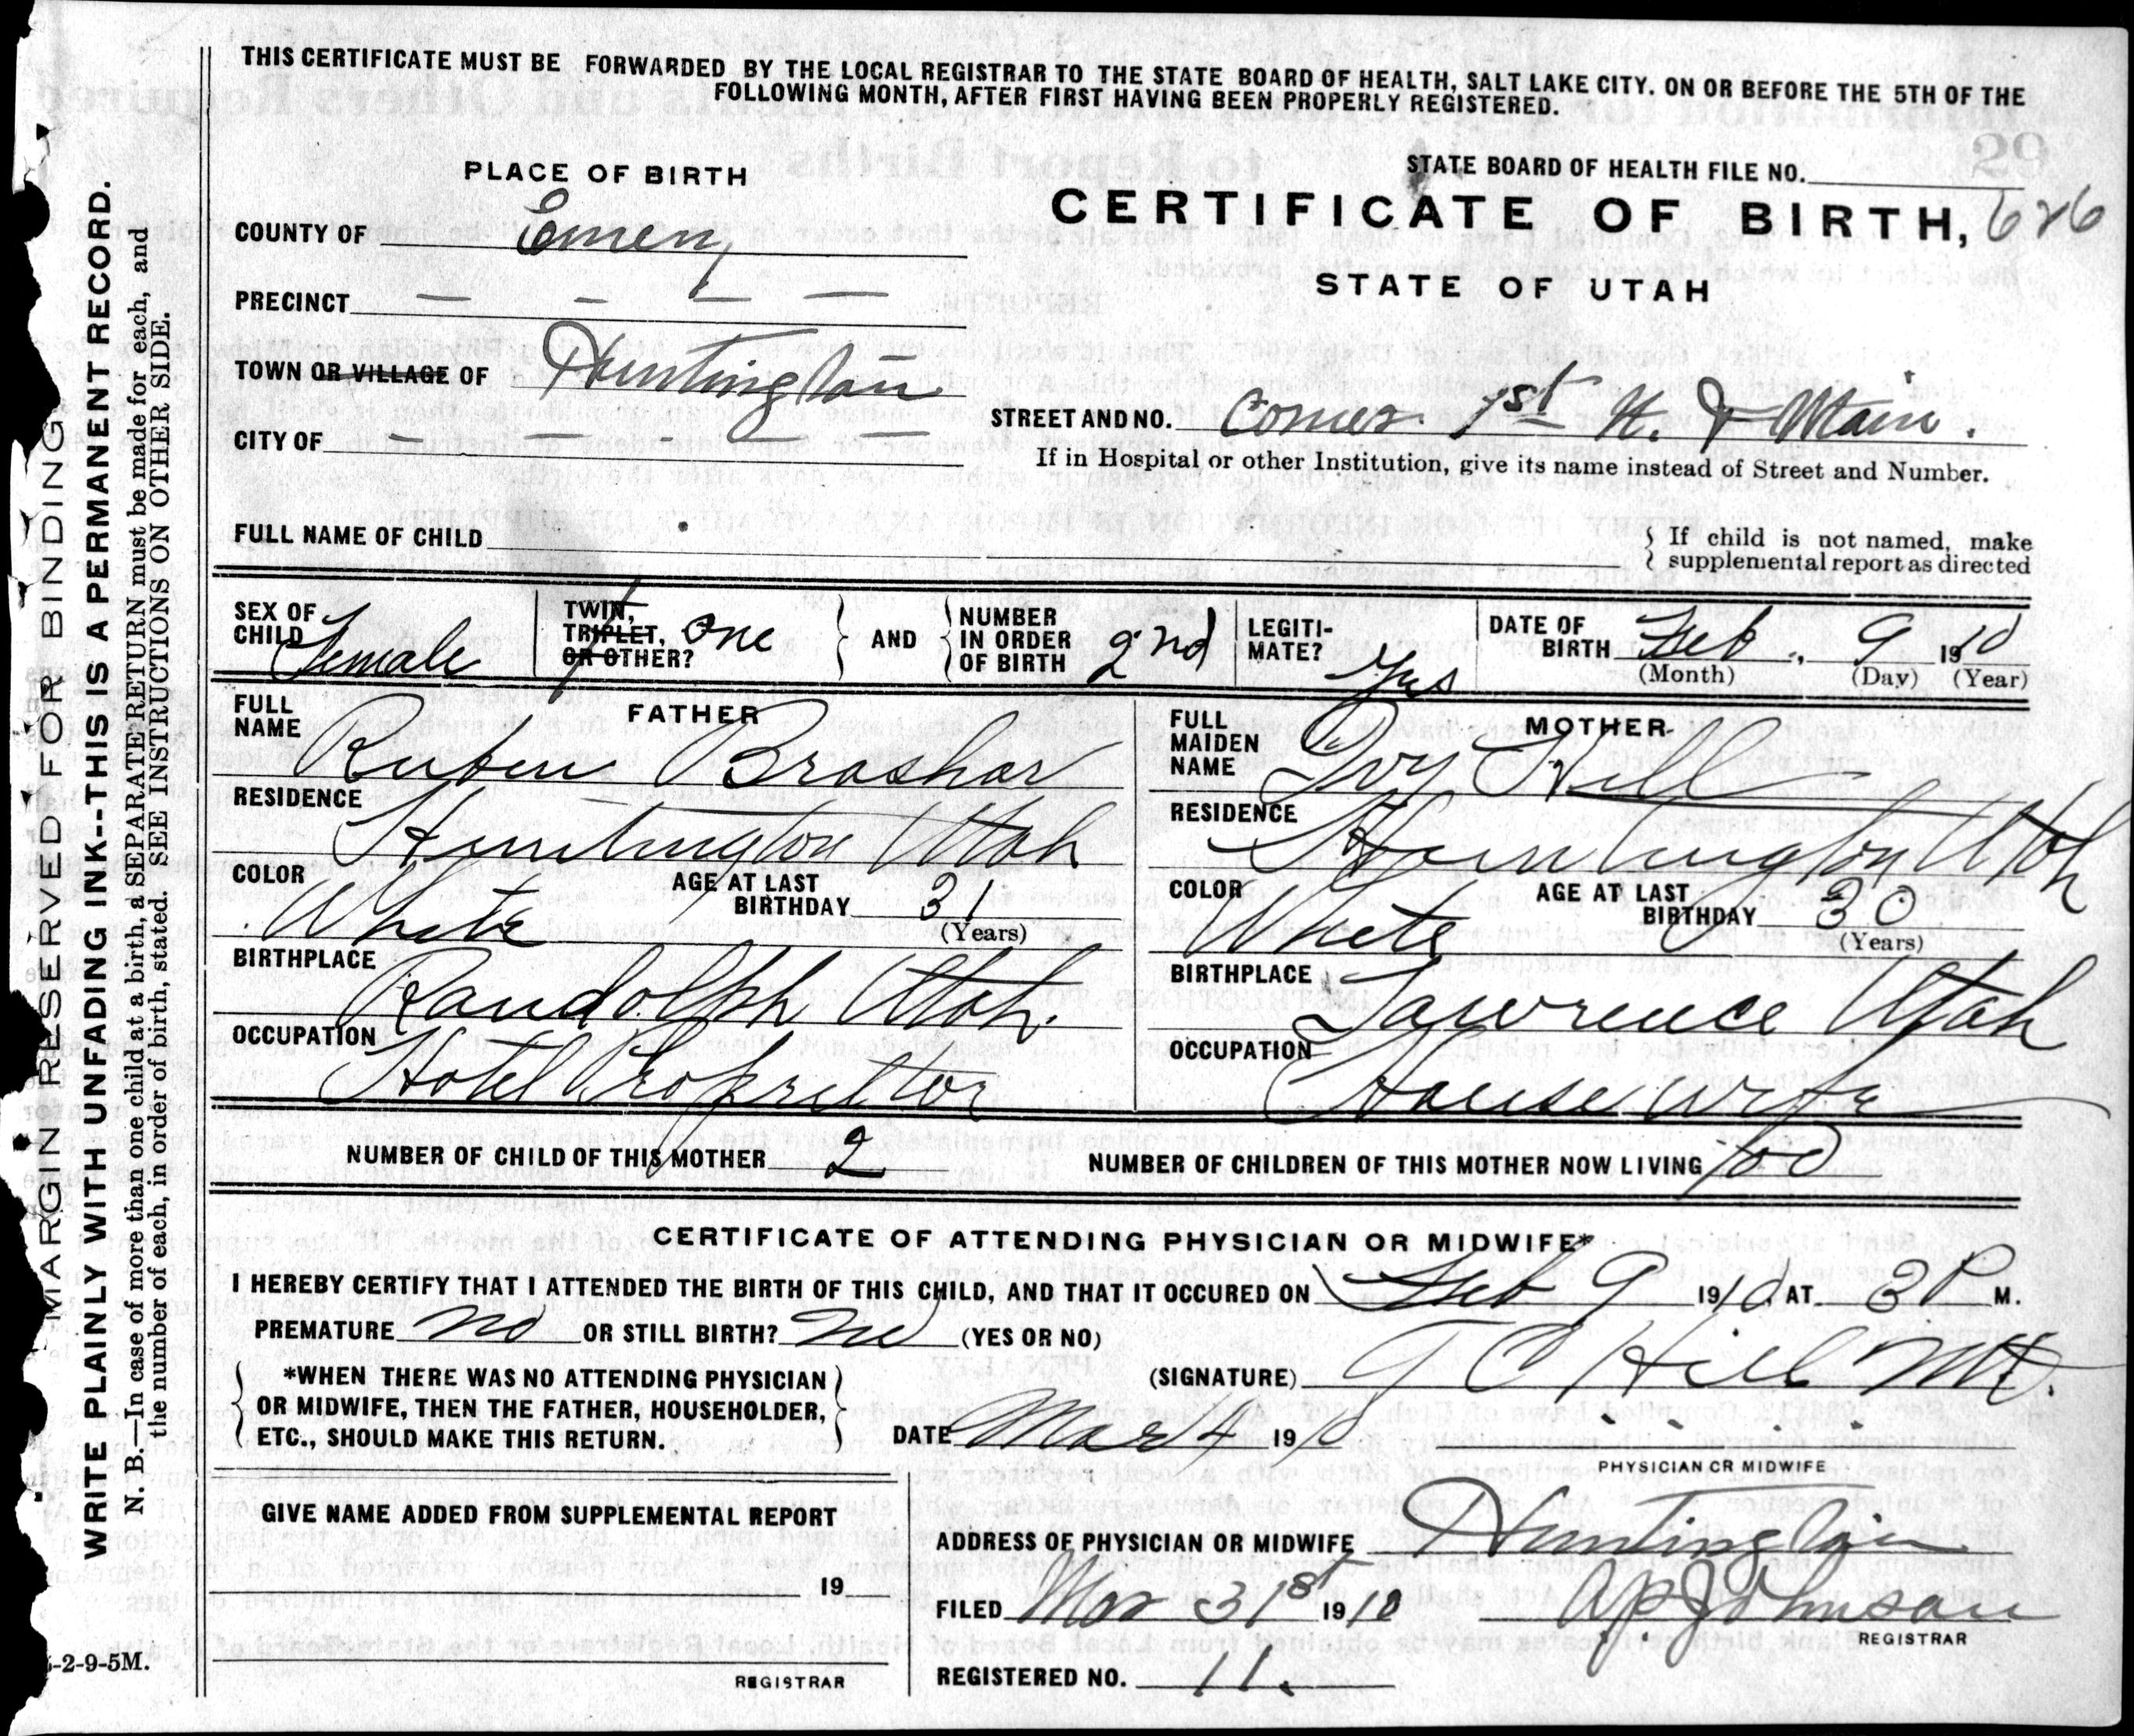 THIS CERTIFICATE MUST BE FORWARDED BY THE LOCAL REGISTRAR TO THE STATE BOARD OF HEALTH, SALT LAKE CITY. ON OR BEFORE THE 5TH OF THE
FOLLOWING MONTH, AFTER FIRST HAVING BEEN PROPERLY REGISTERED.
PLACE OF BIRTH
STATE BOARD OF HEALTH FILE NO.
CERTIFICATE OF BIRTH, 626
STATE OF UTAH
COUNTY OF Emery
PRECINCT — — — —
TOWN OR VILLAGE OF Huntington
CITY OF — — - — —
STREET AND NO. Corner 1st N. & Main.
If in Hospital or other Institution, give its name instead of Street and Number.
FULL NAME OF CHILD
If child is not named, make
supplemental report as directed
SEX OF CHILD Female
TWIN, TRIPLET, OR OTHER? One
AND
NUMBER IN ORDER OF BIRTH 2nd
LEGITI-MATE? Yes
DATE OF BIRTH Feb., 9 1910
(Month) (Day) (Year)
FATHER
FULL NAME Ruben Brashar
RESIDENCE Huntington Utah
COLOR White
AGE AT LAST BIRTHDAY 31
(Years)
BIRTHPLACE Randolph Utah.
OCCUPATION Hotel Propriltor
MOTHER
FULL MAIDEN NAME Ivy Hill
RESIDENCE Huntington Utah
COLOR White
AGE AT LAST BIRTHDAY 30
(Years)
BIRTHPLACE Lawrence Utah
OCCUPATION House wife
NUMBER OF CHILD OF THIS MOTHER 2
NUMBER OF CHILDREN OF THIS MOTHER NOW LIVING
CERTIFICATE OF ATTENDING PHYSICIAN OR MIDWIFE*
I HEREBY CERTIFY THAT I ATTENDED THE BIRTH OF THIS CHILD, AND THAT IT OCCURED ON Feb 9 1910, AT 3 P M.
PREMATURE No OR STILL BIRTH? No (YES OR NO)
*WHEN THERE WAS NO ATTENDING PHYSICIAN
OR MIDWIFE, THEN THE FATHER, HOUSEHOLDER,
ETC., SHOULD MAKE THIS RETURN.
(SIGNATURE) T C Hill MD.
DATE Mar 4 1910
PHYSICIAN OR MIDWIFE
GIVE NAME ADDED FROM SUPPLEMENTAL REPORT
19
REGISTRAR
ADDRESS OF PHYSICIAN OR MIDWIFE Huntington
FILED Mar 31st 1910 A.P. Johnson
REGISTRAR
REGISTERED NO. 11.
MARGIN RESERVED FOR BINDING
WRITE PLAINLY WITH UNFADING INK--THIS IS A PERMANENT RECORD.
N. B.—In case of more than one child at a birth, a SEPARATE RETURN must be made for each, and
the number of each, in order of birth, stated. SEE INSTRUCTIONS ON OTHER SIDE.
-2-9-5M.